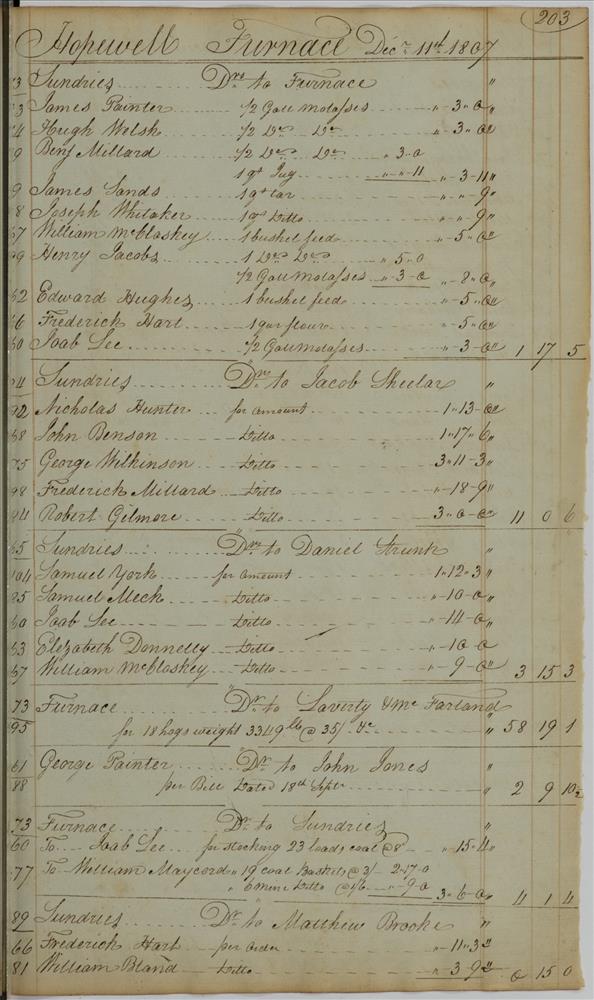 203
Hopewell Furnace Decr 11th 1807
73 Sundries Drs to Furnace "
James Painter 1/2 Gall Molasses " 3 " 0 "
Hugh Welsh 1/2 Do Do " 3 " 0 "
Benj Millard 1/2 Do Do " 3 " 0
1 qt Jug " " " 11 " 3 " 11 "
James Sands 1 qt tar " " " 9 "
Joseph Whitaker 1 qt Ditto " " " 9 "
67 William McClaskey 1 bushel feed " 5 " 0 "
Henry Jacobs 1 Do Do " 5 " 0
1/2 Gall Molasses " 3 " 0 " 8 " 0 "
62 Edward Hughes 1 bushel feed " 5 " 0 "
66 Frederick Hart 1 qur flour " 5 " 0 "
60 Joab Lee 1/2 Gall Molasses " 3 " 0 " 1 17 5
Sundries Drs to Jacob Sheelar "
92 Nicholas Hunter for amount 1 " 13 " 0 "
68 John Benson Ditto 1 " 17 " 6 "
75 George Wilkinson Ditto 3 " 11 " 3 "
98 Frederick Millard Ditto " 18 " 9 "
84 Robert Gilmore Ditto 3 " 0 " 0 " 11 0 6
Sundries Drs to Daniel Strunk "
104 Samuel York for amount 1 " 12 " 3 "
Samuel Meck Ditto " 10 " 0
60 Joab Lee Ditto " 14 " 0 "
63 Elizabeth Donnelly Ditto " 10 " 0
67 William McClaskey Ditto " 9 " 0 " 3 15 3
73 Furnace Dr to Laverty & McFarland
95 for 18 hogs weight 3349 lb @ 35/ &c " 58 19 1
61 George Painter Dr to John Jones "
88 per Bill Dated 18th Septr " 2 9 10 1/2
73 Furnace Dr to Sundries "
60 To Joab Lee for stocking 23 loads coal @ 8d " 15 " 4 "
77 To William Maycord " 19 coal Baskets @ 3/ 2 " 17 " 0
" 6 mine Ditto @ 1/6 " 9 " 0 3 " 6 " 0 " 4 1 4
89 Sundries Dr to Matthew Brooke "
66 Frederick Hart per order " 11 " 3 "
81 William Bland Ditto " 3 " 9 " 0 15 0